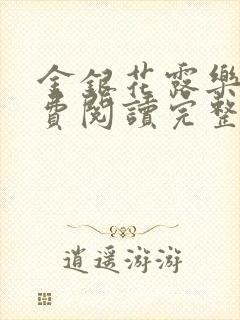 金銀花露樂
費閱讀完整
逍遥游游